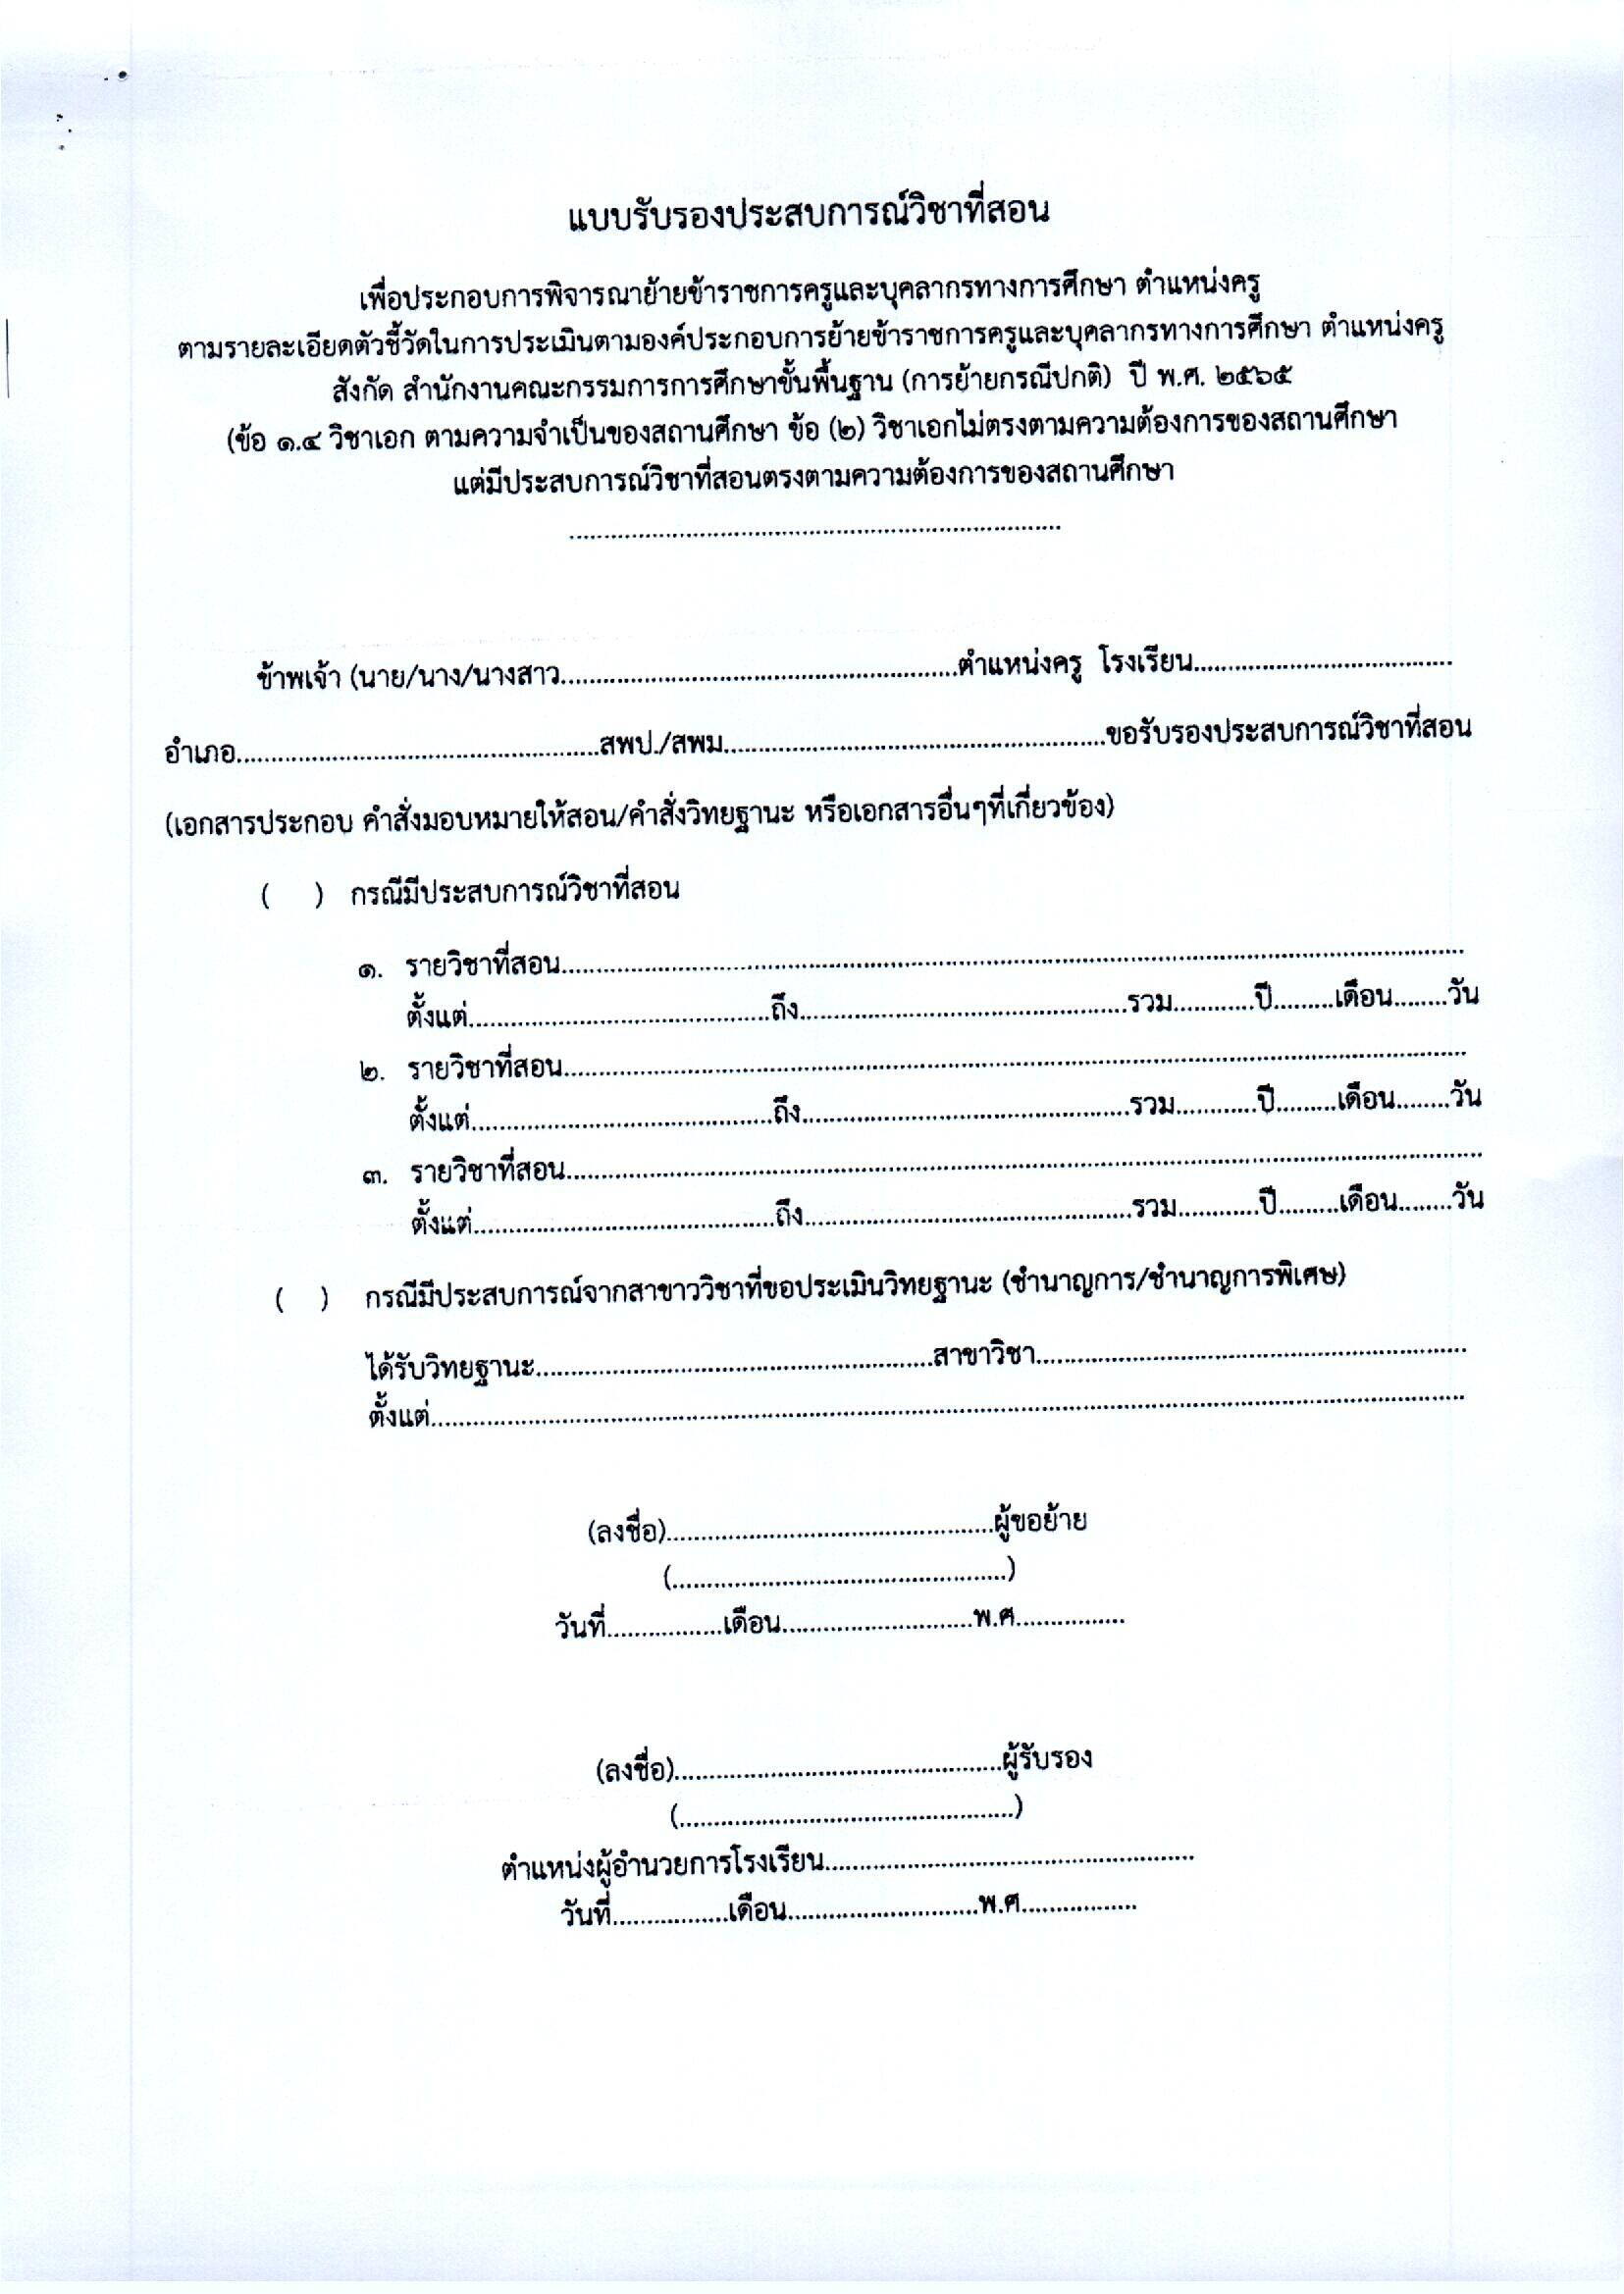 แบบรับรองประสบการณ์วิชาที่สอน
เพื่อประกอบการพิจารณาย้ายข้าราชการครูและบุคลากรทางการศึกษา ตำแหน่งครู
ตามรายละเอียดตัวชี้วัดในการประเมินตามองค์ประกอบการย้ายข้าราชการครูและบุคลากรทางการศึกษา ตำแหน่งครู
สังกัด สำนักงานคณะกรรมการการศึกษาขั้นพื้นฐาน (การย้ายกรณีปกติ) ปี พ.ศ. ๒๕๖๕
(ข้อ ๑.๔ วิชาเอก ตามความจำเป็นของสถานศึกษา ข้อ (๒) วิชาเอกไม่ตรงตามความต้องการของสถานศึกษา
แต่มีประสบการณ์วิชาที่สอนตรงตามความต้องการของสถานศึกษา
........................................................................
ข้าพเจ้า (นาย/นาง/นางสาว..........................................................ตำแหน่งครู โรงเรียน......................................
อำเภอ.....................................................สพป./สพม........................................................ขอรับรองประสบการณ์วิชาที่สอน
(เอกสารประกอบ คำสั่งมอบหมายให้สอน/คำสั่งวิทยฐานะ หรือเอกสารอื่นๆที่เกี่ยวข้อง)
( ) กรณีมีประสบการณ์วิชาที่สอน
๑. รายวิชาที่สอน....................................................................................................................................
ตั้งแต่............................................ถึง................................................รวม............ปี.........เดือน........วัน
๒. รายวิชาที่สอน....................................................................................................................................
ตั้งแต่............................................ถึง................................................รวม............ปี.........เดือน........วัน
๓. รายวิชาที่สอน......................................................................................................................................
ตั้งแต่............................................ถึง................................................รวม............ปี.........เดือน........วัน
( ) กรณีมีประสบการณ์จากสาขาววิชาที่ขอประเมินวิทยฐานะ (ชำนาญการ/ชำนาญการพิเศษ)
ได้รับวิทยฐานะ..........................................................สาขาวิชา...............................................................
ตั้งแต่.......................................................................................................................................................
(ลงชื่อ)................................................ผู้ขอย้าย
(.................................................)
วันที่.................เดือน............................พ.ศ................
(ลงชื่อ)................................................ผู้รับรอง
(.................................................)
ตำแหน่งผู้อำนวยการโรงเรียน......................................................
วันที่.................เดือน............................พ.ศ.................